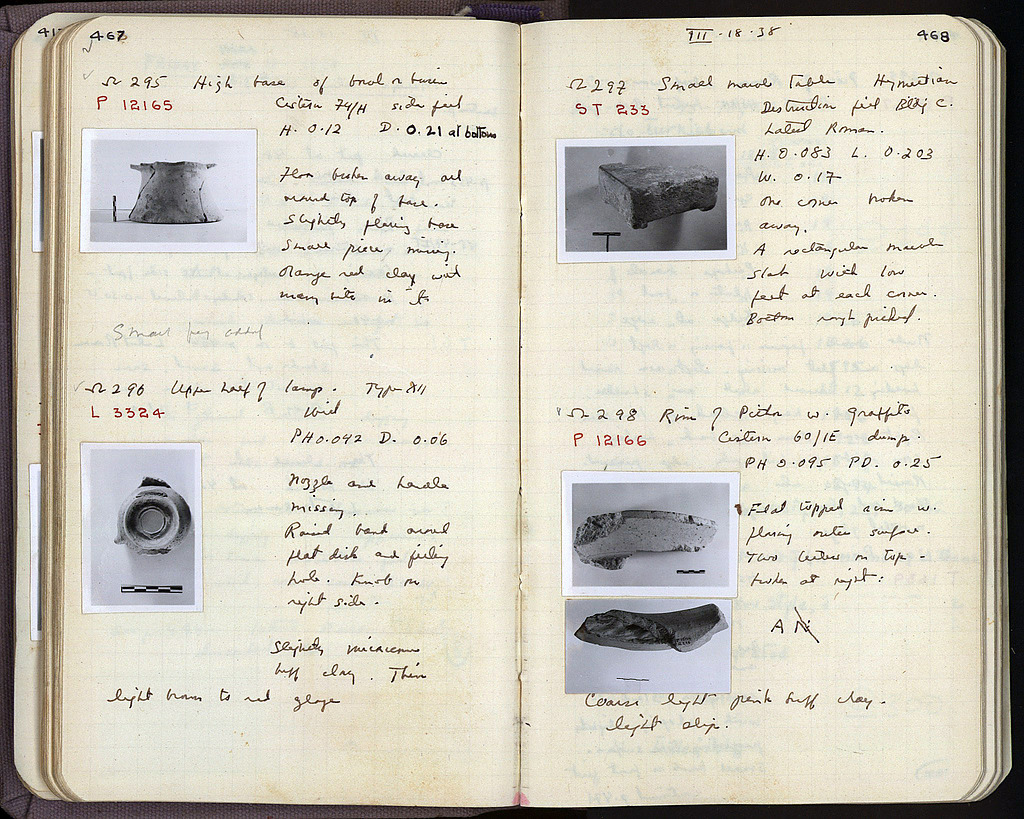 41
467
Ω 295 High base of bowl or basin
P 12165 Cistern 74/H side fill
H. 0.12 D. 0.21 at bottom
Floor broken away all
around top of base.
Slightly flaring base
Small piece missing.
Orange red clay with
many bits in it
Small frag added
Ω 296 Upper half of lamp. Type XII
L 3324 Well
PH 0.042 D. 0.06
Nozzle and handle
missing.
Raised band around
flat disk and filling
hole. Knob on
right side.
Slightly micaceous
buff clay. Thin
light brown to red glaze
III-18-38
468
Ω 297 Small marble Table Hymettian
ST 233 Destruction fill Bldg C.
Latest Roman.
H. 0.083 L. 0.203
W. 0.17
One corner broken
away.
A rectangular marble
slab with low
feet at each corner.
Bottom rough picked.
Ω 298 Rim of Pithos w. graffito
P 12166 Cistern 60/IE dump.
PH 0.095 PD. 0.25
Flat topped rim w.
flaring outer surface.
Two letters on top
broken at right:
A N
Coarse light pink buff clay.
light slip.